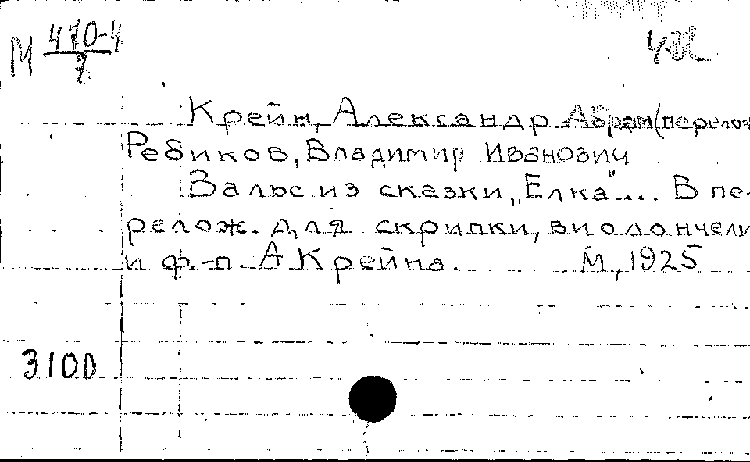 М 470-4
7
Крейн, Александр Абрам(перелож
Ребиков, Владимир Иванович
Вальс из сказки „Елка"... В пе-
релож. для скрипки, виолончели
и ф.-п. А Крейна. М, 1925
3100